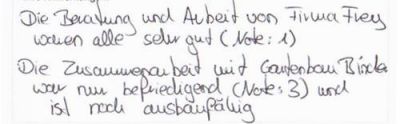 Die Beratung und Arbeit von Firma Frey
waren alle sehr gut (Note: 1)
Die Zusammenarbeit mit Gartenbau Binder
war nur befriedigend (Note: 3) und
ist noch ausbaufähig